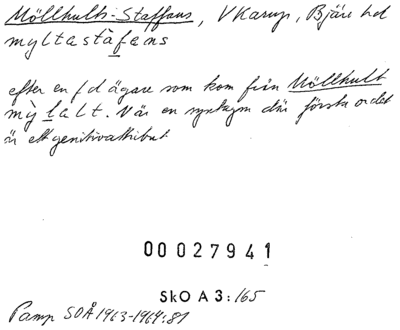 Möllhults-Staffans, V Karup, Bjäre hd
myltastàfans
efter en f d ägare som kom från Möllhult
mỳlalt. V är en syntagm där första ordet
är ett genitivattribut.
00027941
SkO A 3:165
Pamp SOÅ 1963-1964:81